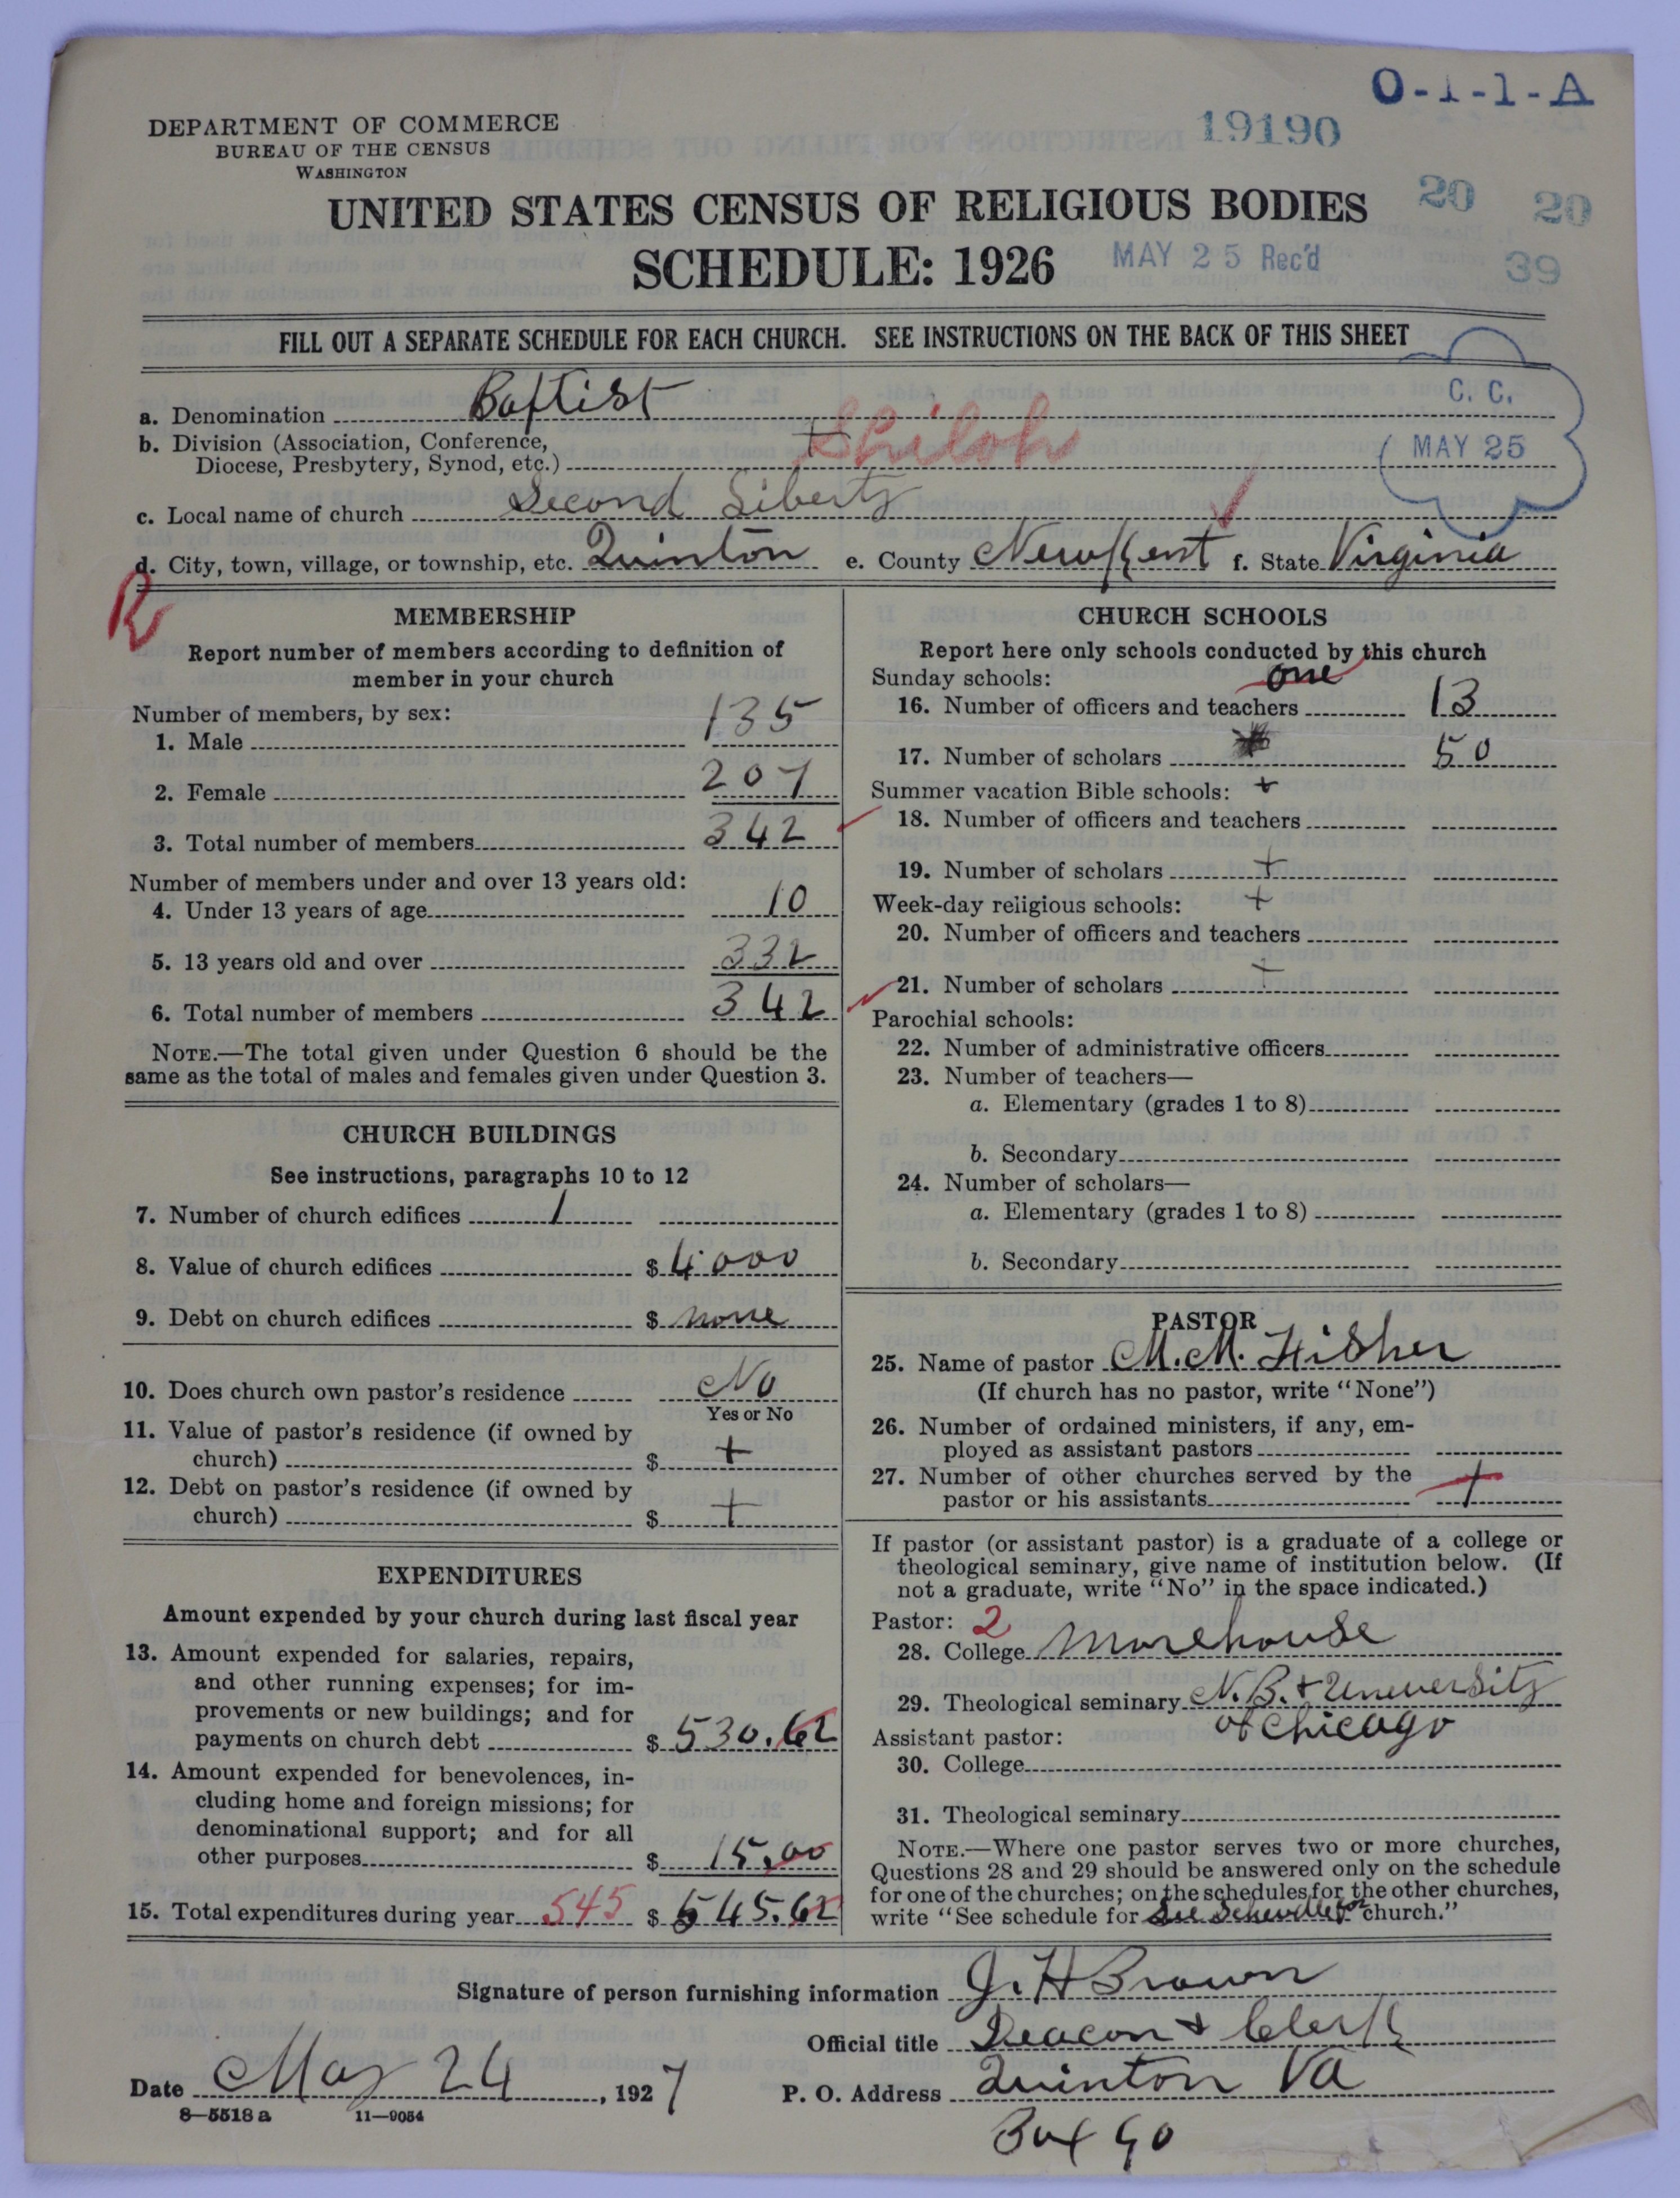 O-1-1-A
19190
DEPARTMENT OF COMMERCE
BUREAU OF THE CENSUS
WASHINGTON
UNITED STATES CENSUS OF RELIGIOUS BODIES
20 20
SCHEDULE: 1926
MAY 25 Rec'd
39
FILL OUT A SEPARATE SCHEDULE FOR EACH CHURCH. SEE INSTRUCTIONS ON THE BACK OF THIS SHEET
C. C.
MAY 25
a. Denomination Baptist
b. Division (Association, Conference,
Diocese, Presbytery, Synod, etc.) + Shiloh
c. Local name of church Second Liberty
d. City, town, village, or township, etc. Quinton e. County New Kent f. State Virginia
R
MEMBERSHIP
Report number of members according to definition of
member in your church
Number of members, by sex:
1. Male 135
2. Female 207
3. Total number of members 342
Number of members under and over 13 years old:
4. Under 13 years of age 10
5. 13 years old and over 332
6. Total number of members 342
NOTE.—The total given under Question 6 should be the
same as the total of males and females given under Question 3.
CHURCH BUILDINGS
See instructions, paragraphs 10 to 12
7. Number of church edifices 1
8. Value of church edifices $ 4000
9. Debt on church edifices $ none
10. Does church own pastor's residence No
Yes or No
11. Value of pastor's residence (if owned by
church) $ +
12. Debt on pastor's residence (if owned by
church) $ +
EXPENDITURES
Amount expended by your church during last fiscal year
13. Amount expended for salaries, repairs,
and other running expenses; for im-
provements or new buildings; and for
payments on church debt $ 530.62
14. Amount expended for benevolences, in-
cluding home and foreign missions; for
denominational support; and for all
other purposes $ 15.00
15. Total expenditures during year 545 $ 545.62
CHURCH SCHOOLS
Report here only schools conducted by this church
Sunday schools: one
16. Number of officers and teachers 13
17. Number of scholars 50
Summer vacation Bible schools: +
18. Number of officers and teachers
19. Number of scholars +
Week-day religious schools: +
20. Number of officers and teachers
21. Number of scholars +
Parochial schools:
22. Number of administrative officers
23. Number of teachers—
a. Elementary (grades 1 to 8)
b. Secondary
24. Number of scholars—
a. Elementary (grades 1 to 8)
b. Secondary
PASTOR
25. Name of pastor M. M. Fisher
(If church has no pastor, write "None")
26. Number of ordained ministers, if any, em-
ployed as assistant pastors
27. Number of other churches served by the
pastor or his assistants +
If pastor (or assistant pastor) is a graduate of a college or
theological seminary, give name of institution below. (If
not a graduate, write "No" in the space indicated.)
Pastor: 2
28. College Morehouse
29. Theological seminary N. B. + Uneversity
of Chicago
Assistant pastor:
30. College
31. Theological seminary
NOTE.—Where one pastor serves two or more churches,
Questions 28 and 29 should be answered only on the schedule
for one of the churches; on the schedules for the other churches,
write "See schedule for See Schevdle for church."
Signature of person furnishing information J. H Brown
Official title Deacon + Clerk
Date May 24, 1927
P. O. Address Quinton Va
Box 90
8—5518 a 11—9054